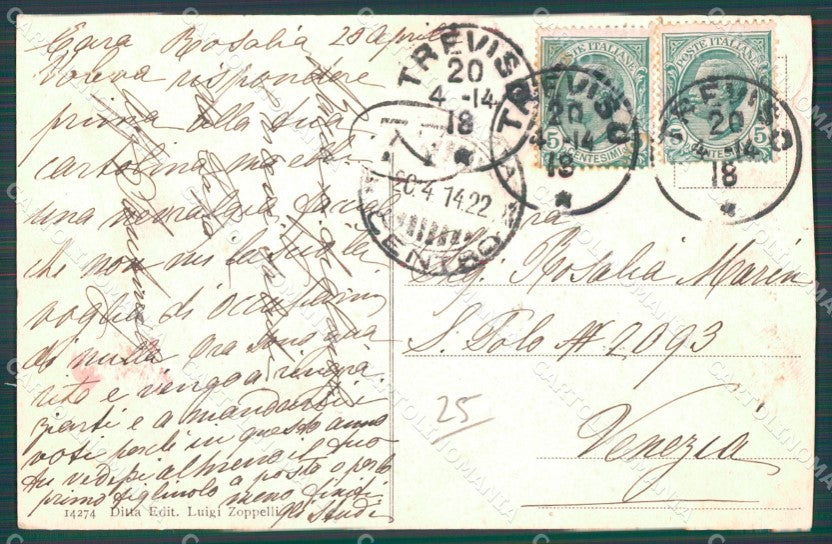 Cara Rosalia 20 Aprile
Voleva rispondere
prima alla tua
cartolina ma ebbi
una nevralgia
che non mi lasciava
voglia di occuparmi
di nulla Ora sono gua
rita e vengo a ringra
ziarti e a mandarti i
voti perchè in questo anno
tu vedi almeno il tuo
primo figliuolo a posto o per lo
meno finiti
gli studi
14274 Ditta Edit. Luigi Zoppelli
TREVISO
20
4 -14
18
TREVISO
20
4 -14
18
TREVISO
20
4 -14
18
20.4 14.22
CENTRO
POSTE ITALIANE
5 CENTESIMI 5
POSTE ITALIANE
5 CENTESIMI 5
Sig. Rosalia Marin
S. Polo # 2093
Venezia
25
CARTOLINOMANIA